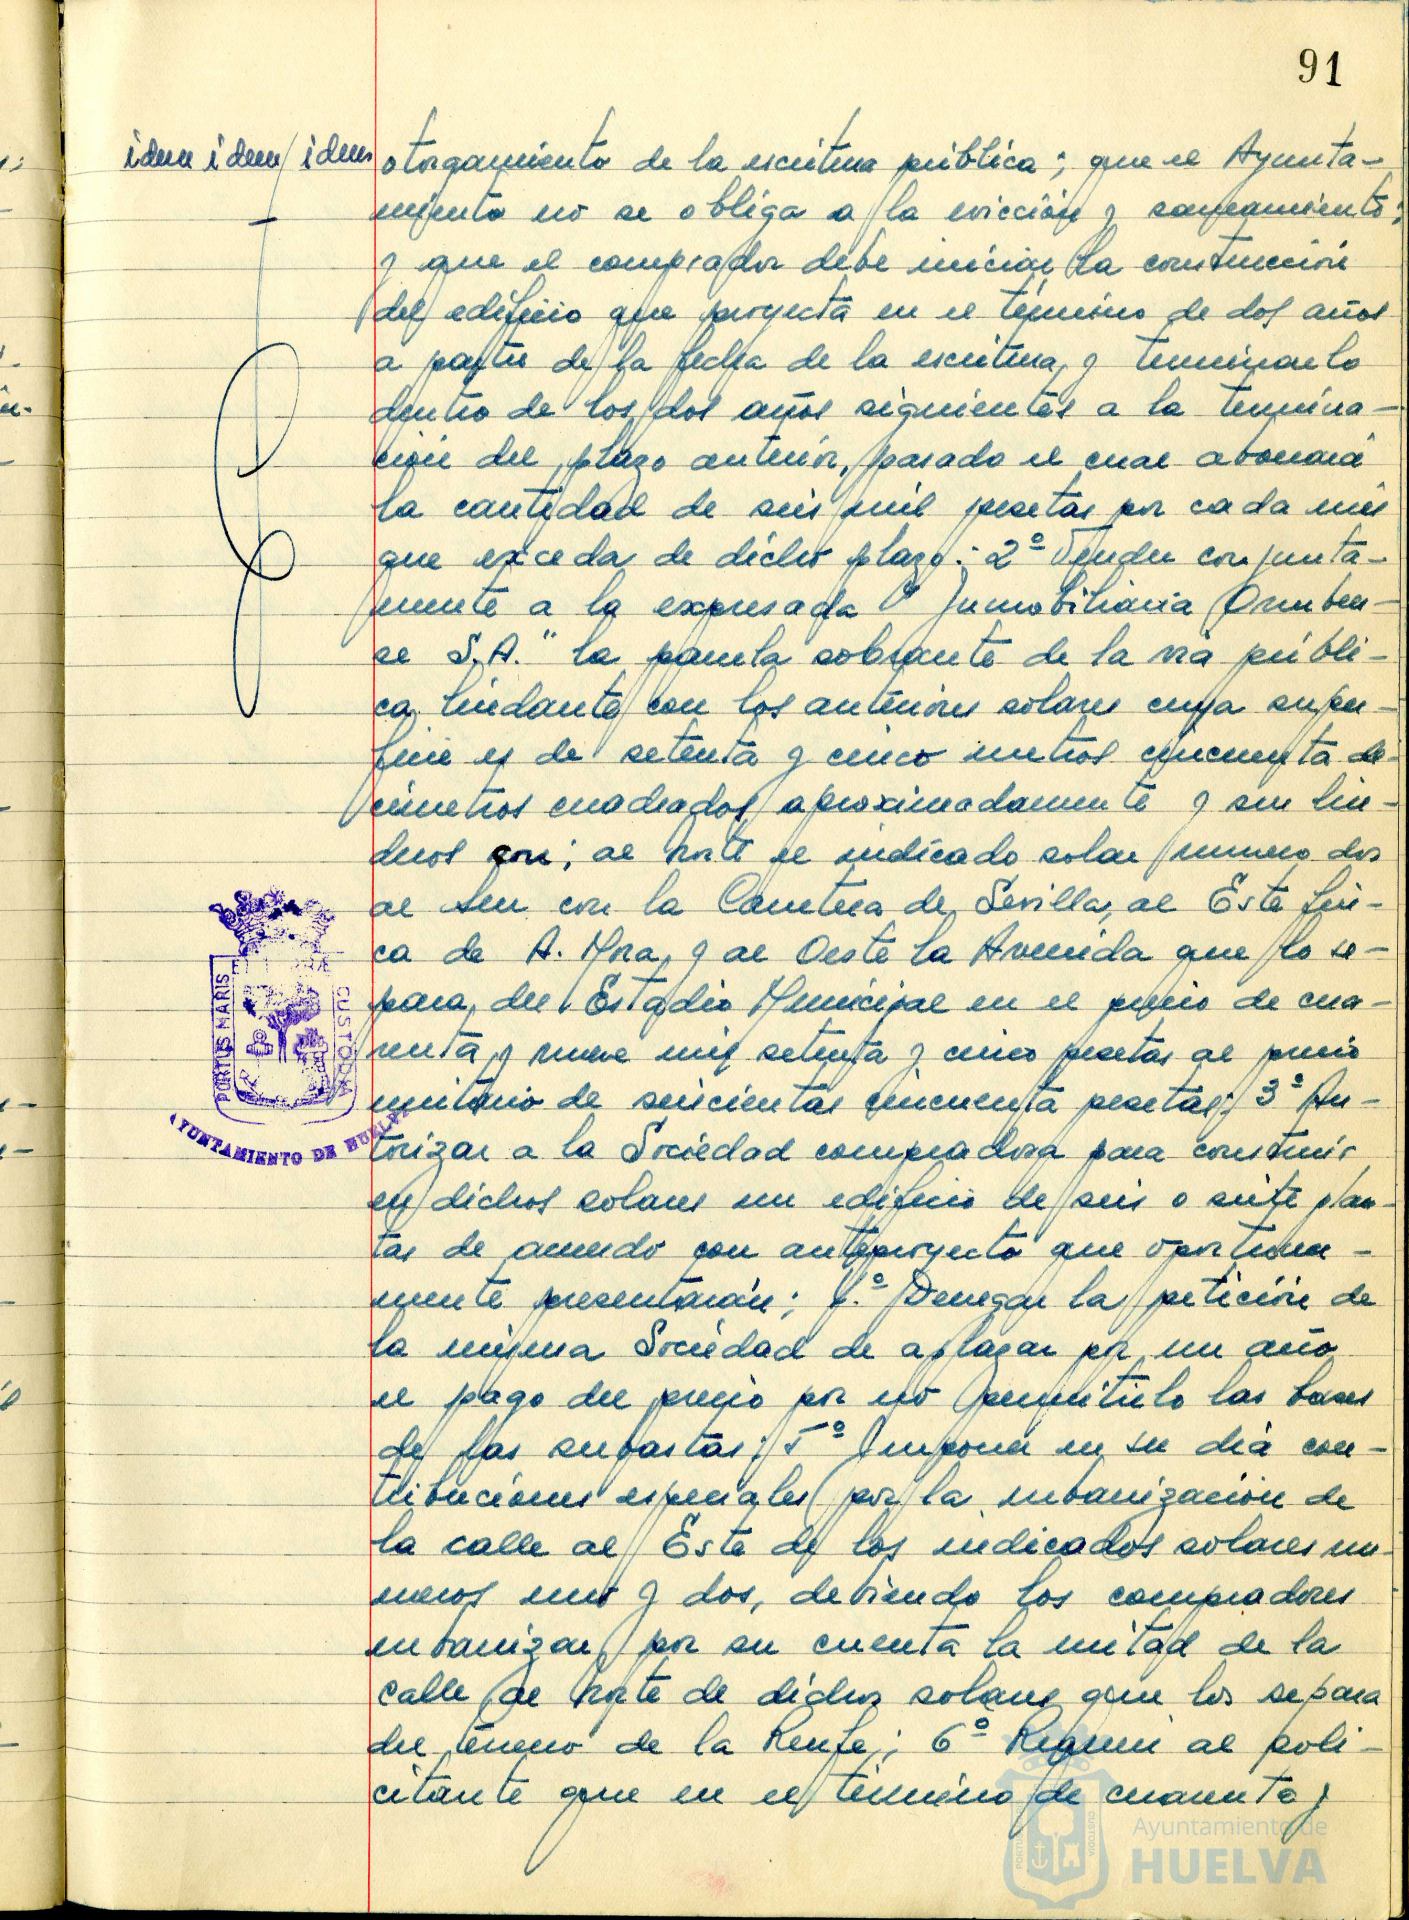 91
idem idem idem
otorgamiento de la escritura pública; que el Ayunta-
miento no se obliga a la evicción y saneamiento;
y que el comprador debe iniciar la construcción
del edificio que proyecta en el término de dos años
a partir de la fecha de la escritura, y terminarlo
dentro de los dos años siguientes a la termina-
ción del plazo anterior, pasado el cual abonará
la cantidad de seis mil pesetas por cada mes
que exceda de dicho plazo; 2º Vender conjunta-
mente a la expresada "Inmobiliaria Onuben-
se S.A." la parcela sobrante de la via públi-
ca lindante con los anteriores solares cuya super-
ficie es de setenta y cinco metros cincuenta de-
cimetros cuadrados aproximadamente y sus lin-
deros son; al Norte el indicado solar numero dos
al Sur con la Carretera de Sevilla, al Este fin-
ca de A. Mora, y al Oeste la Avenida que lo se-
para del Estadio Municipal en el precio de cua-
renta y nueve mil setenta y cinco pesetas al precio
unitario de seiscientas cincuenta pesetas; 3º Au-
torizar a la Sociedad compradora para construir
en dichos solares un edificio de seis o siete plan-
tas de acuerdo con anteproyecto que oportuna-
mente presentarán; 4.º Denegar la petición de
la misma Sociedad de aplazar por un año
el pago del precio por no permitirlo las bases
de las subastas; 5º Imponer en su dia con-
tribuciones especiales por la urbanización de
la calle al Este de los indicados solares nu-
meros uno y dos, debiendo los compradores
urbanizar por su cuenta la mitad de la
calle al Norte de dichos solares que los separa
del terreno de la Renfe; 6º Requerir al poli-
citante que en el término de cuarenta y
PORTUS MARIS
CUSTODIA
AYUNTAMIENTO DE HUELVA
Ayuntamiento de
HUELVA